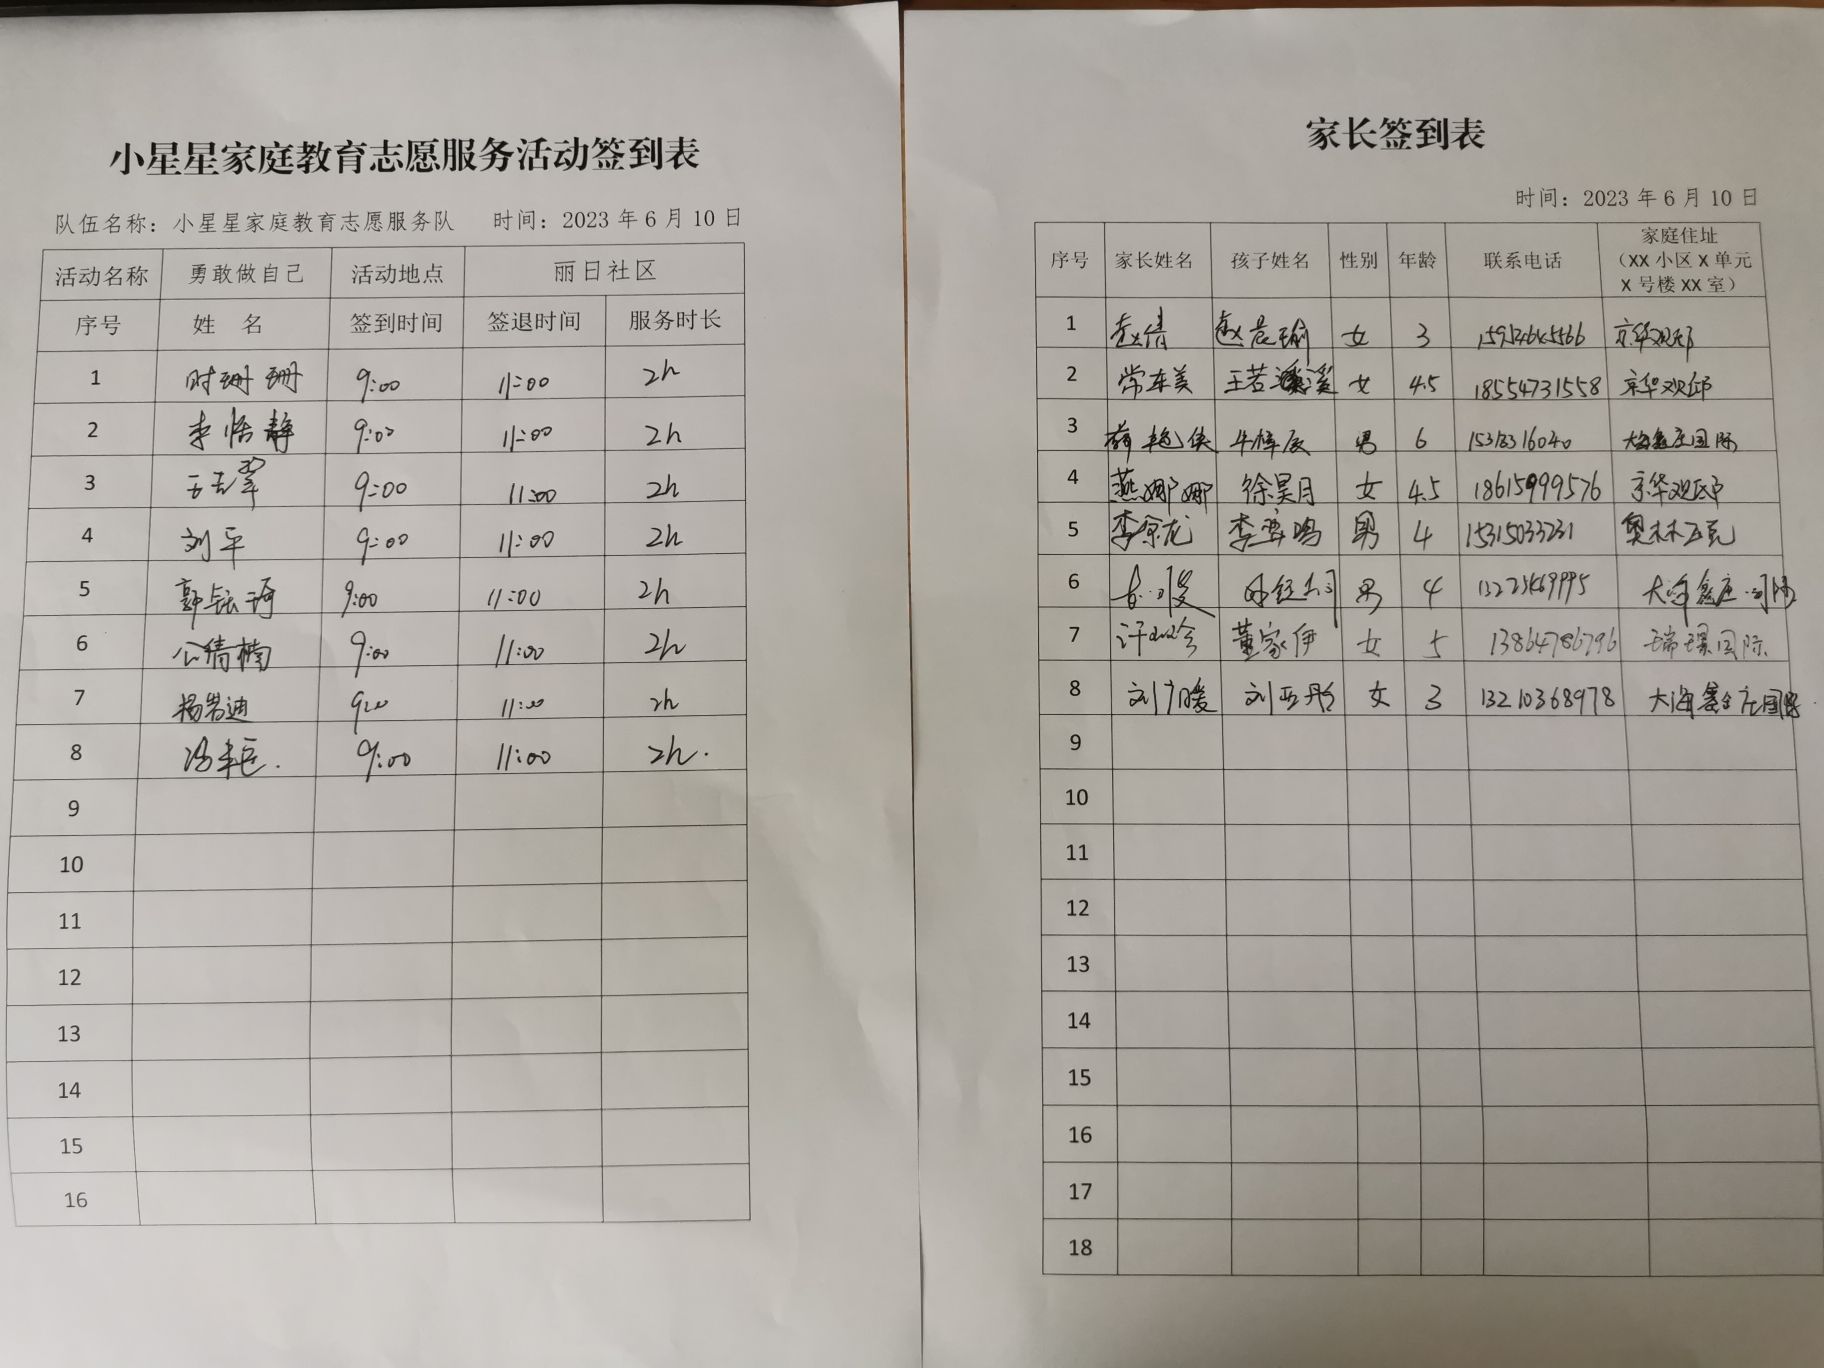 小星星家庭教育志愿服务活动签到表
队伍名称：小星星家庭教育志愿服务队 时间：2023 年 6 月 10 日
活动名称 勇敢做自己 活动地点 丽日社区
序号 姓 名 签到时间 签退时间 服务时长
1 时珊珊 9:00 11:00 2h
2 李恬静 9:00 11:00 2h
3 9:00 11:00 2h
4 刘平 9:00 11:00 2h
5 9:00 11:00 2h
6 公倩楠 9:00 11:00 2h
7 杨岩迪 9:00 11:00 2h
8 9:00 11:00 2h.
9
10
11
12
13
14
15
16
家长签到表
时间：2023 年 6 月 10 日
序号 家长姓名 孩子姓名 性别 年龄 联系电话 家庭住址
（XX 小区 X 单元
X 号楼 XX 室）
1 赵倩 女 3 京华观邸
2 常东美 王若溪 女 4.5 18554731558 京华观邸
3 男 6 国际
4 燕娜娜 徐昊月 女 4.5 18615999576 京华观邸
5 男 4 15315033231 奥林匹克
6 男 4 大海鑫庄国际
7 董家伊 女 5 13864786796 瑞璟国际
8 刘广暖 刘亚彤 女 3 13210368978 大海鑫庄国际
9
10
11
12
13
14
15
16
17
18